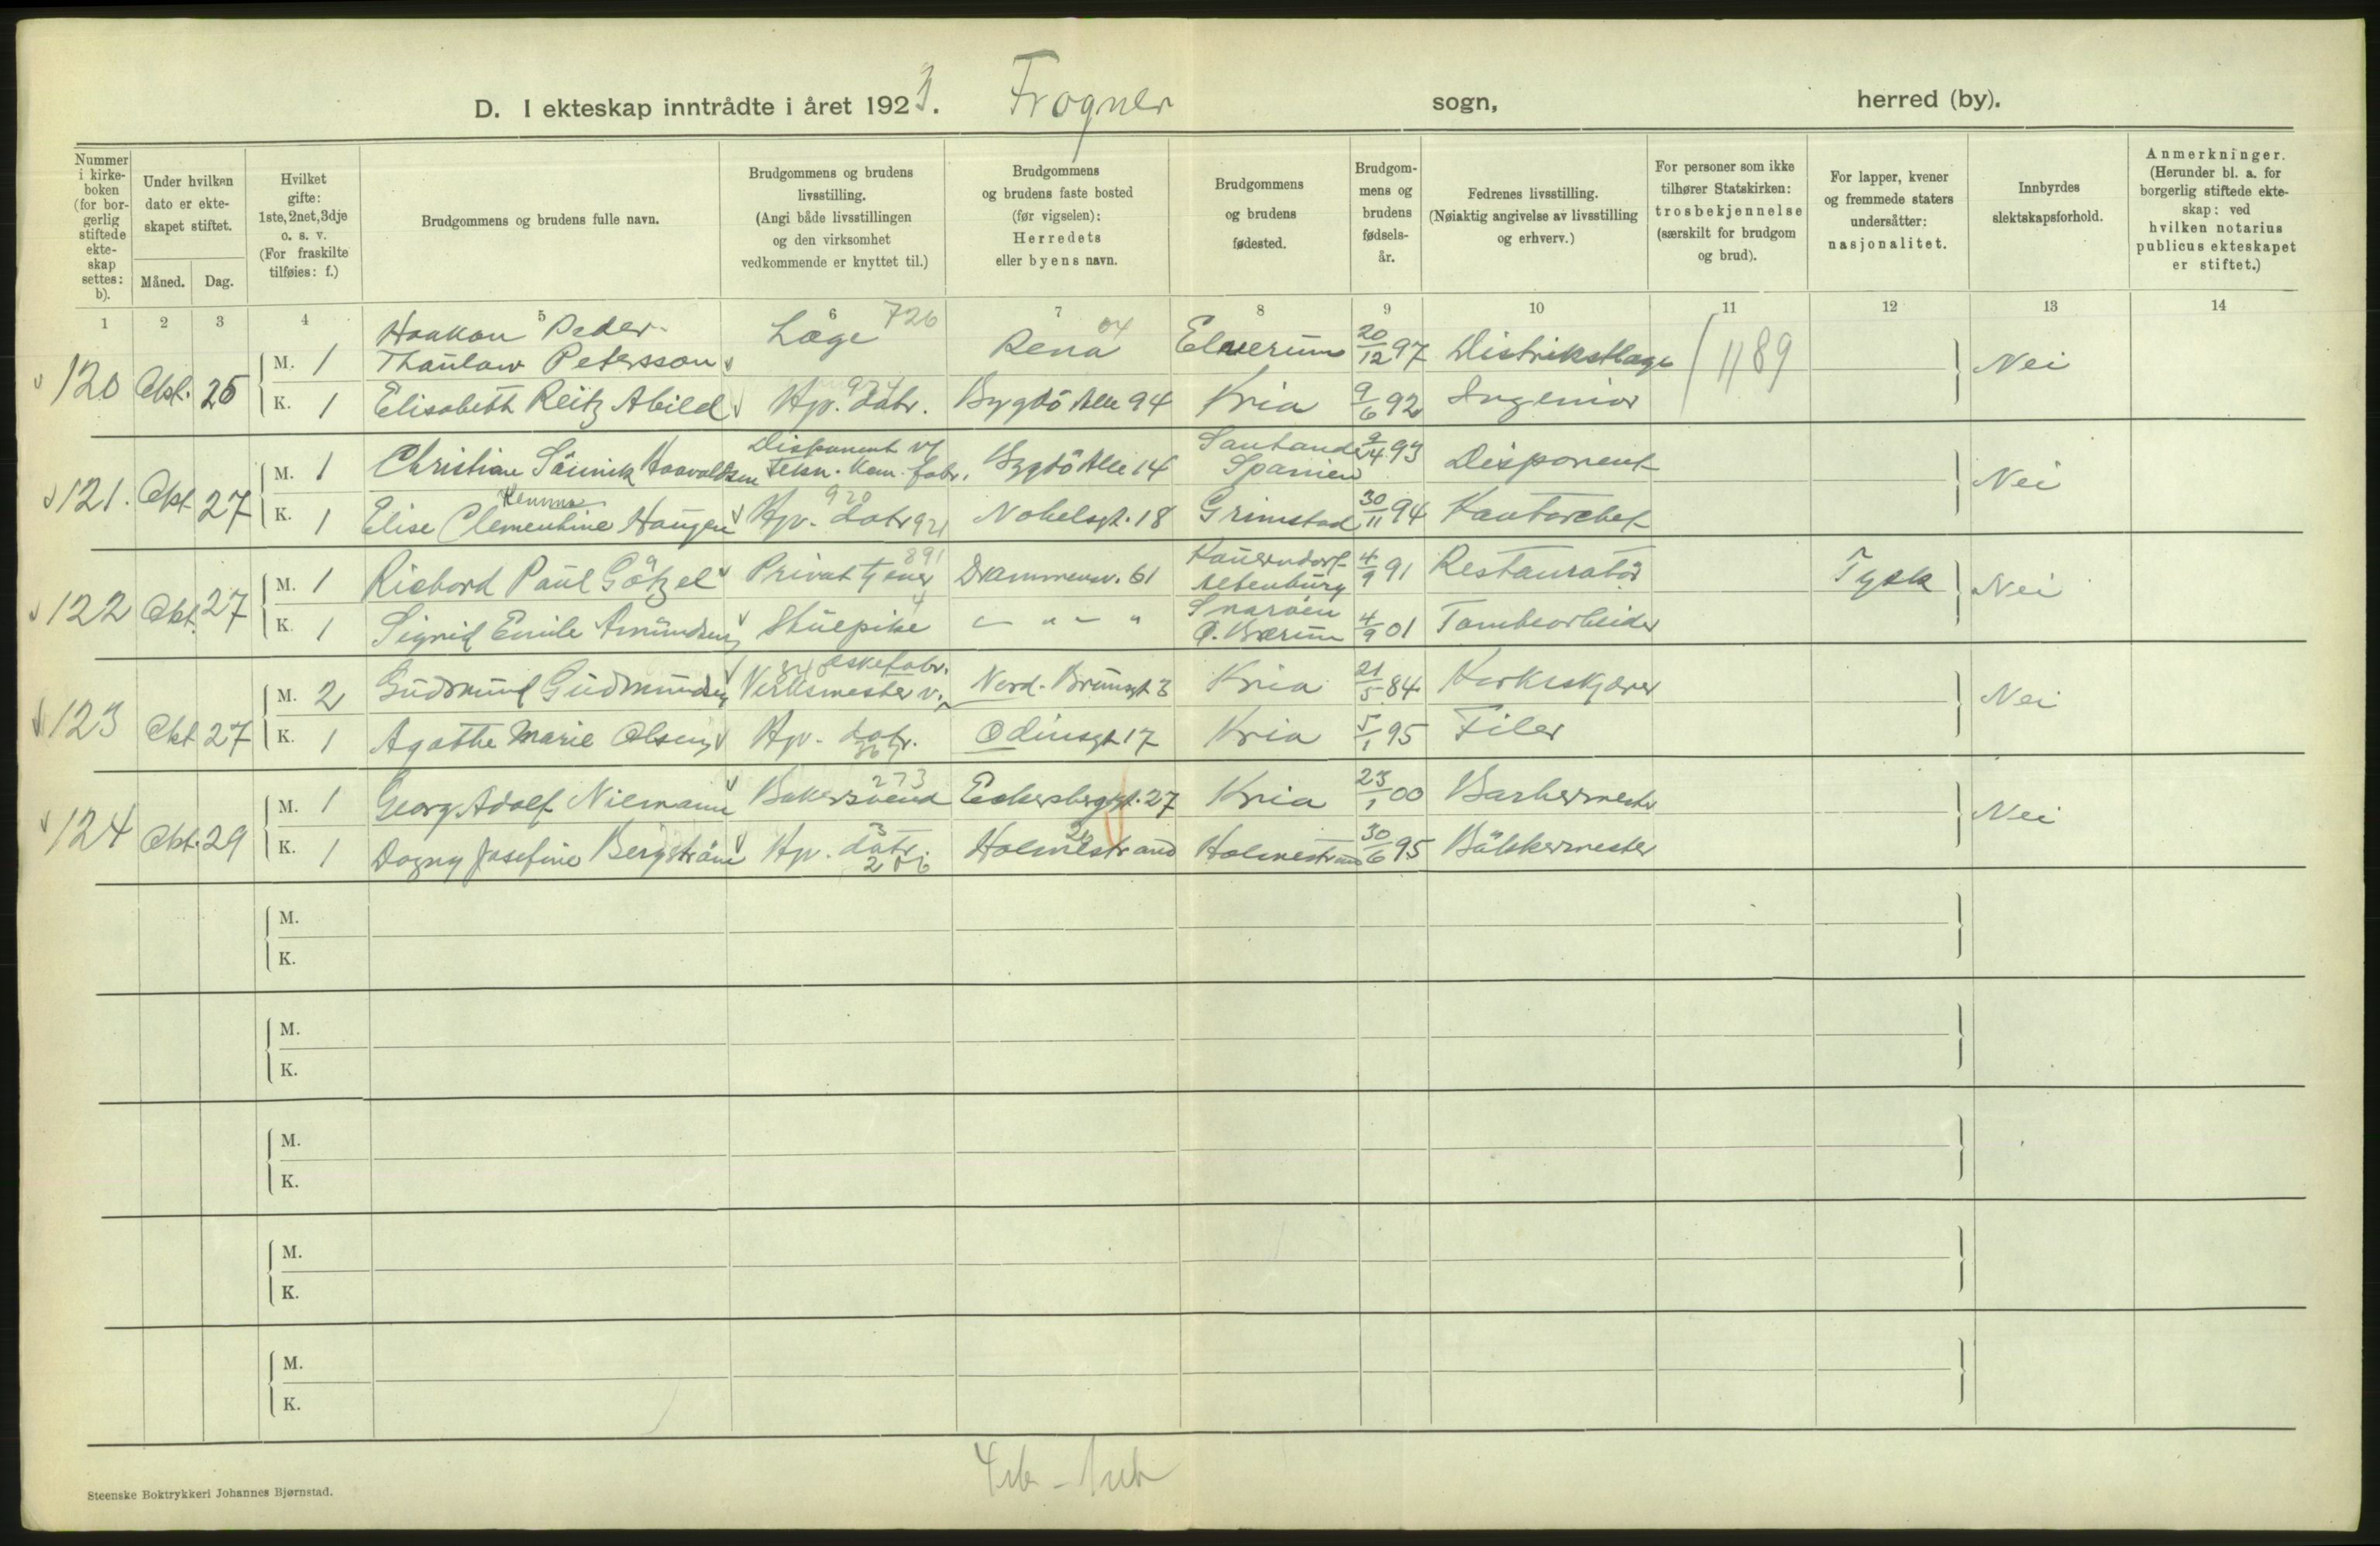 D. I ekteskap inntrådte i året 1923. Frogner sogn, herred (by).
Nummer i kirkeboken (for borgerlig stiftede ekteskap settes: b).
Under hvilken dato er ekteskapet stiftet.
Måned. Dag.
Hvilket gifte: 1ste, 2net, 3dje o. s. v. (For fraskilte tilføies: f.)
Brudgommens og brudens fulle navn.
Brudgommens og brudens livsstilling. (Angi både livsstillingen og den virksomhet vedkommende er knyttet til.)
Brudgommens og brudens faste bosted (før vigselen): Herredets eller byens navn.
Brudgommens og brudens fødested.
Brudgommens og brudens fødselsår.
Fedrenes livsstilling. (Nøiaktig angivelse av livsstilling og erhverv.)
For personer som ikke tilhører Statskirken: trosbekjennelse (særskilt for brudgom og brud).
For lapper, kvener og fremmede staters undersåtter: nasjonalitet.
Innbyrdes slektskapsforhold.
Anmerkninger. (Herunder bl. a. for borgerlig stiftede ekteskap: ved hvilken notarius publicus ekteskapet er stiftet.)
1 2 3 4 5 6 7 8 9 10 11 12 13 14
120 Okt. 25 M. 1 Haakon Peder Thaulow Petersson Læge 726 Rena 04 Elverum 20/12 97 Distriktslæge 1189 Nei
K. 1 Elisabeth Reitz Abild Hjv. datr. Bygdö Alle 94 Kria 9/6 92 Ingeniör
121. Okt 27 M. 1 Christian Haavaldsen Disponent v/ Tekn. Kem. fabr. Bygdö Alle 14 Santander Spanien 9/4 93 Disponent Nei
K. 1 Elise Clementine Haugen Hjv. datr 921 Nobelsgt. 18 Grimstad 30/11 94 Kontorchef
122 Okt. 27 M. 1 Richard Paul Götzel Privat tjener 891 Drammensv. 61 Altenburg 4/9 91 Restauratör Tysk Nei
K. 1 Sigrid Emilie Amundsen Stuepike — " — " Snaröen Ö. Bærum 4/9 01 Tomtearbeider
123 Okt 27 M. 2 Gudmund Gudmundsen Verksmester v. eskefabr. Nord. Brungt 3 Kria 21/5 84 Korkskjærer Nei
K. 1 Agathe Marie Olsen Hjv. datr. Odinsgt 17 Kria 5/1 95 Filer
124 Okt. 29 M. 1 Georg Adolf Niemann Bakersvend 273 Eckersbergsgt. 27 Kria 23/1 00 Barbermester Nei
K. 1 Dagny Josefine Bergström Hjv. datr. Holmestrand Holmestrand 30/6 95 Bökkermester
M.
K.
M.
K.
M.
K.
M.
K.
M.
K.
Steenske Boktrykkeri Johannes Bjørnstad.